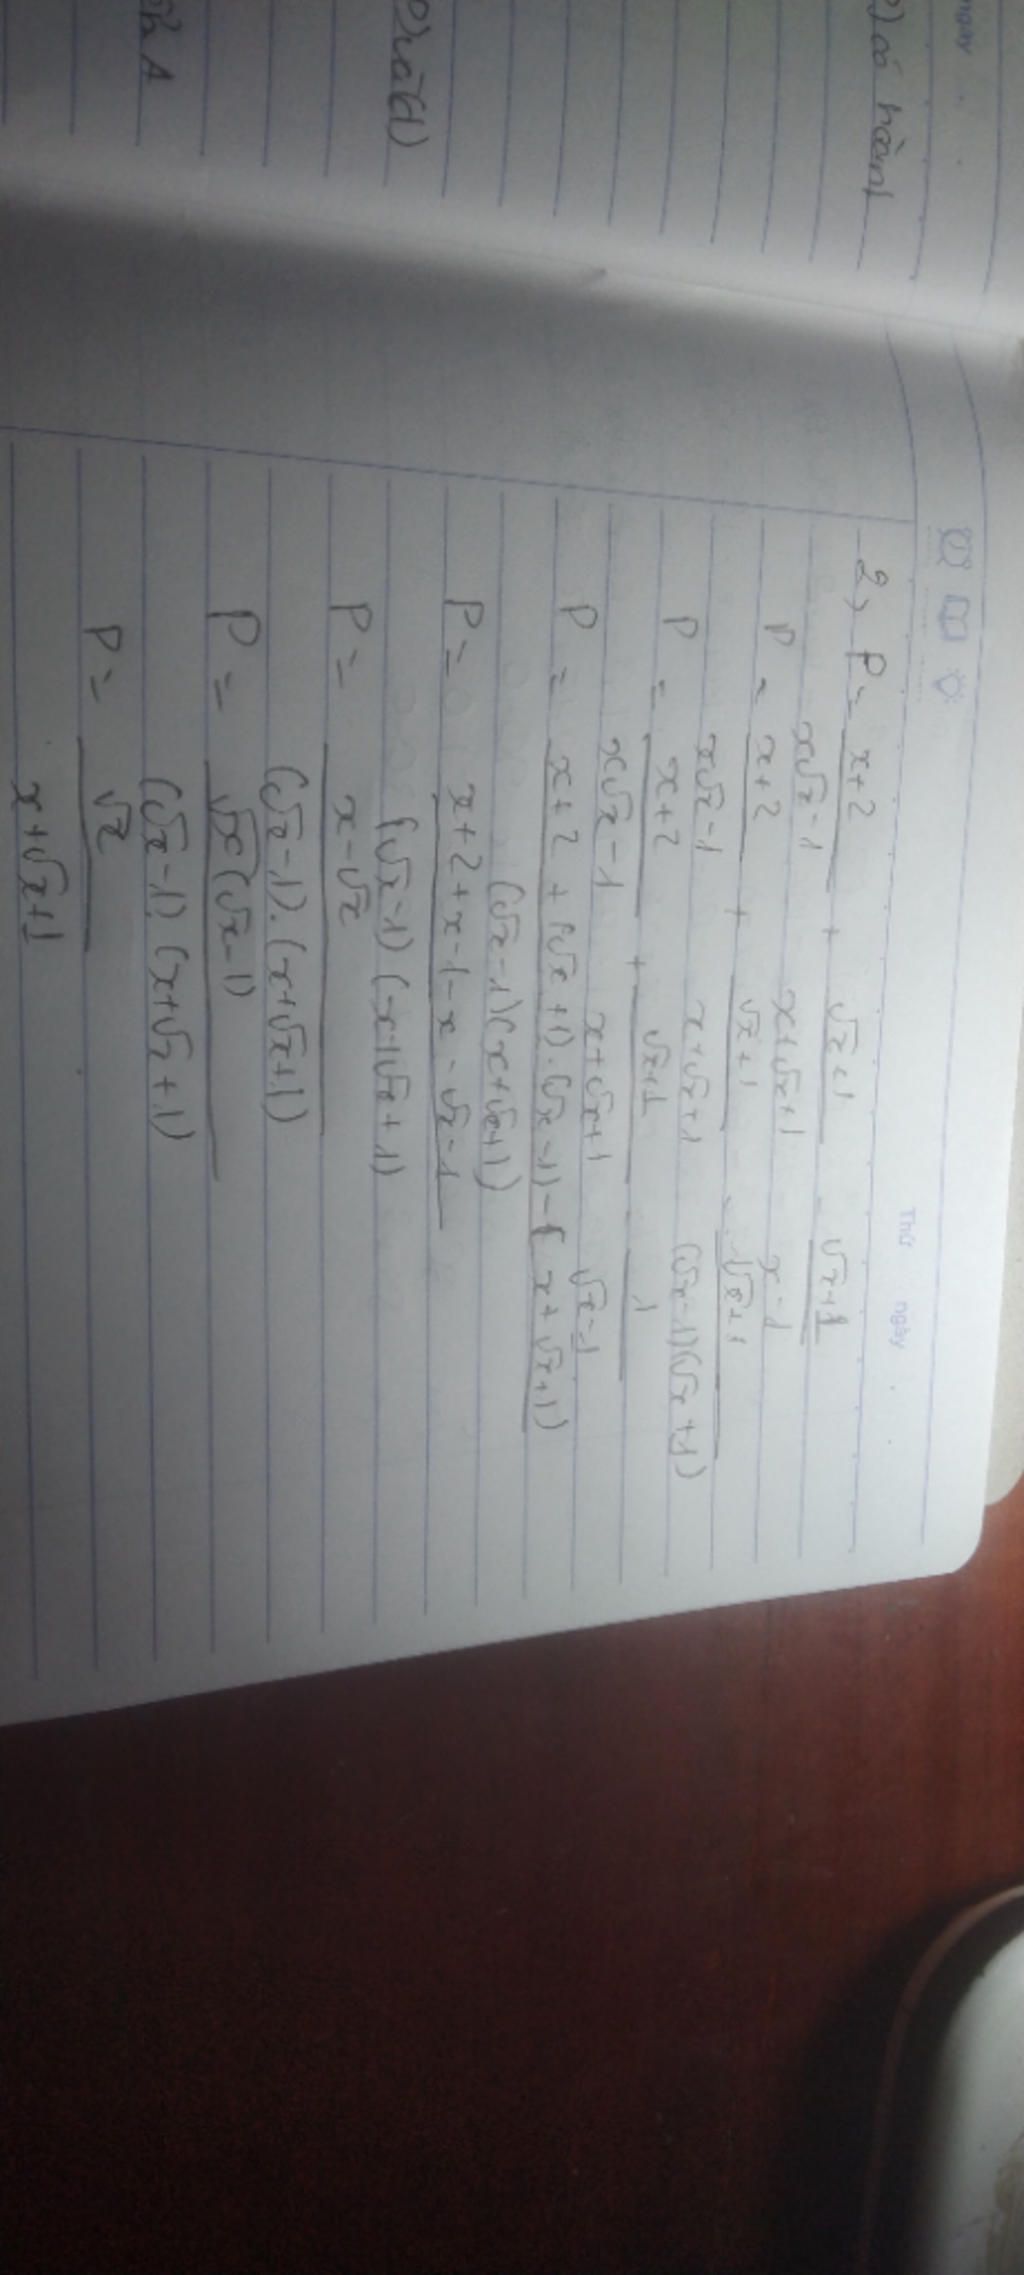 ngày
2) có hoành
P) và (d)
Thứ
ngày
2, P = x+2 / x√x-1 + √x+1 / x+√x+1 - √x+1 / x-1
P = x+2 / x√x-1 + √x+1 / x+√x+1 - √x+1 / (√x-1)(√x+1)
P = x+2 / x√x-1 + √x+1 / x+√x+1 - 1 / √x-1
P = x+2 + (√x+1).(√x-1) - (x+√x+1) / (√x-1)(x+√x+1)
P = x+2+x-1-x-√x-1 / (√x-1)(x+√x+1)
P = x-√x / (√x-1).(x+√x+1)
P = √x(√x-1) / (√x-1).(x+√x+1)
P = √x / x+√x+1